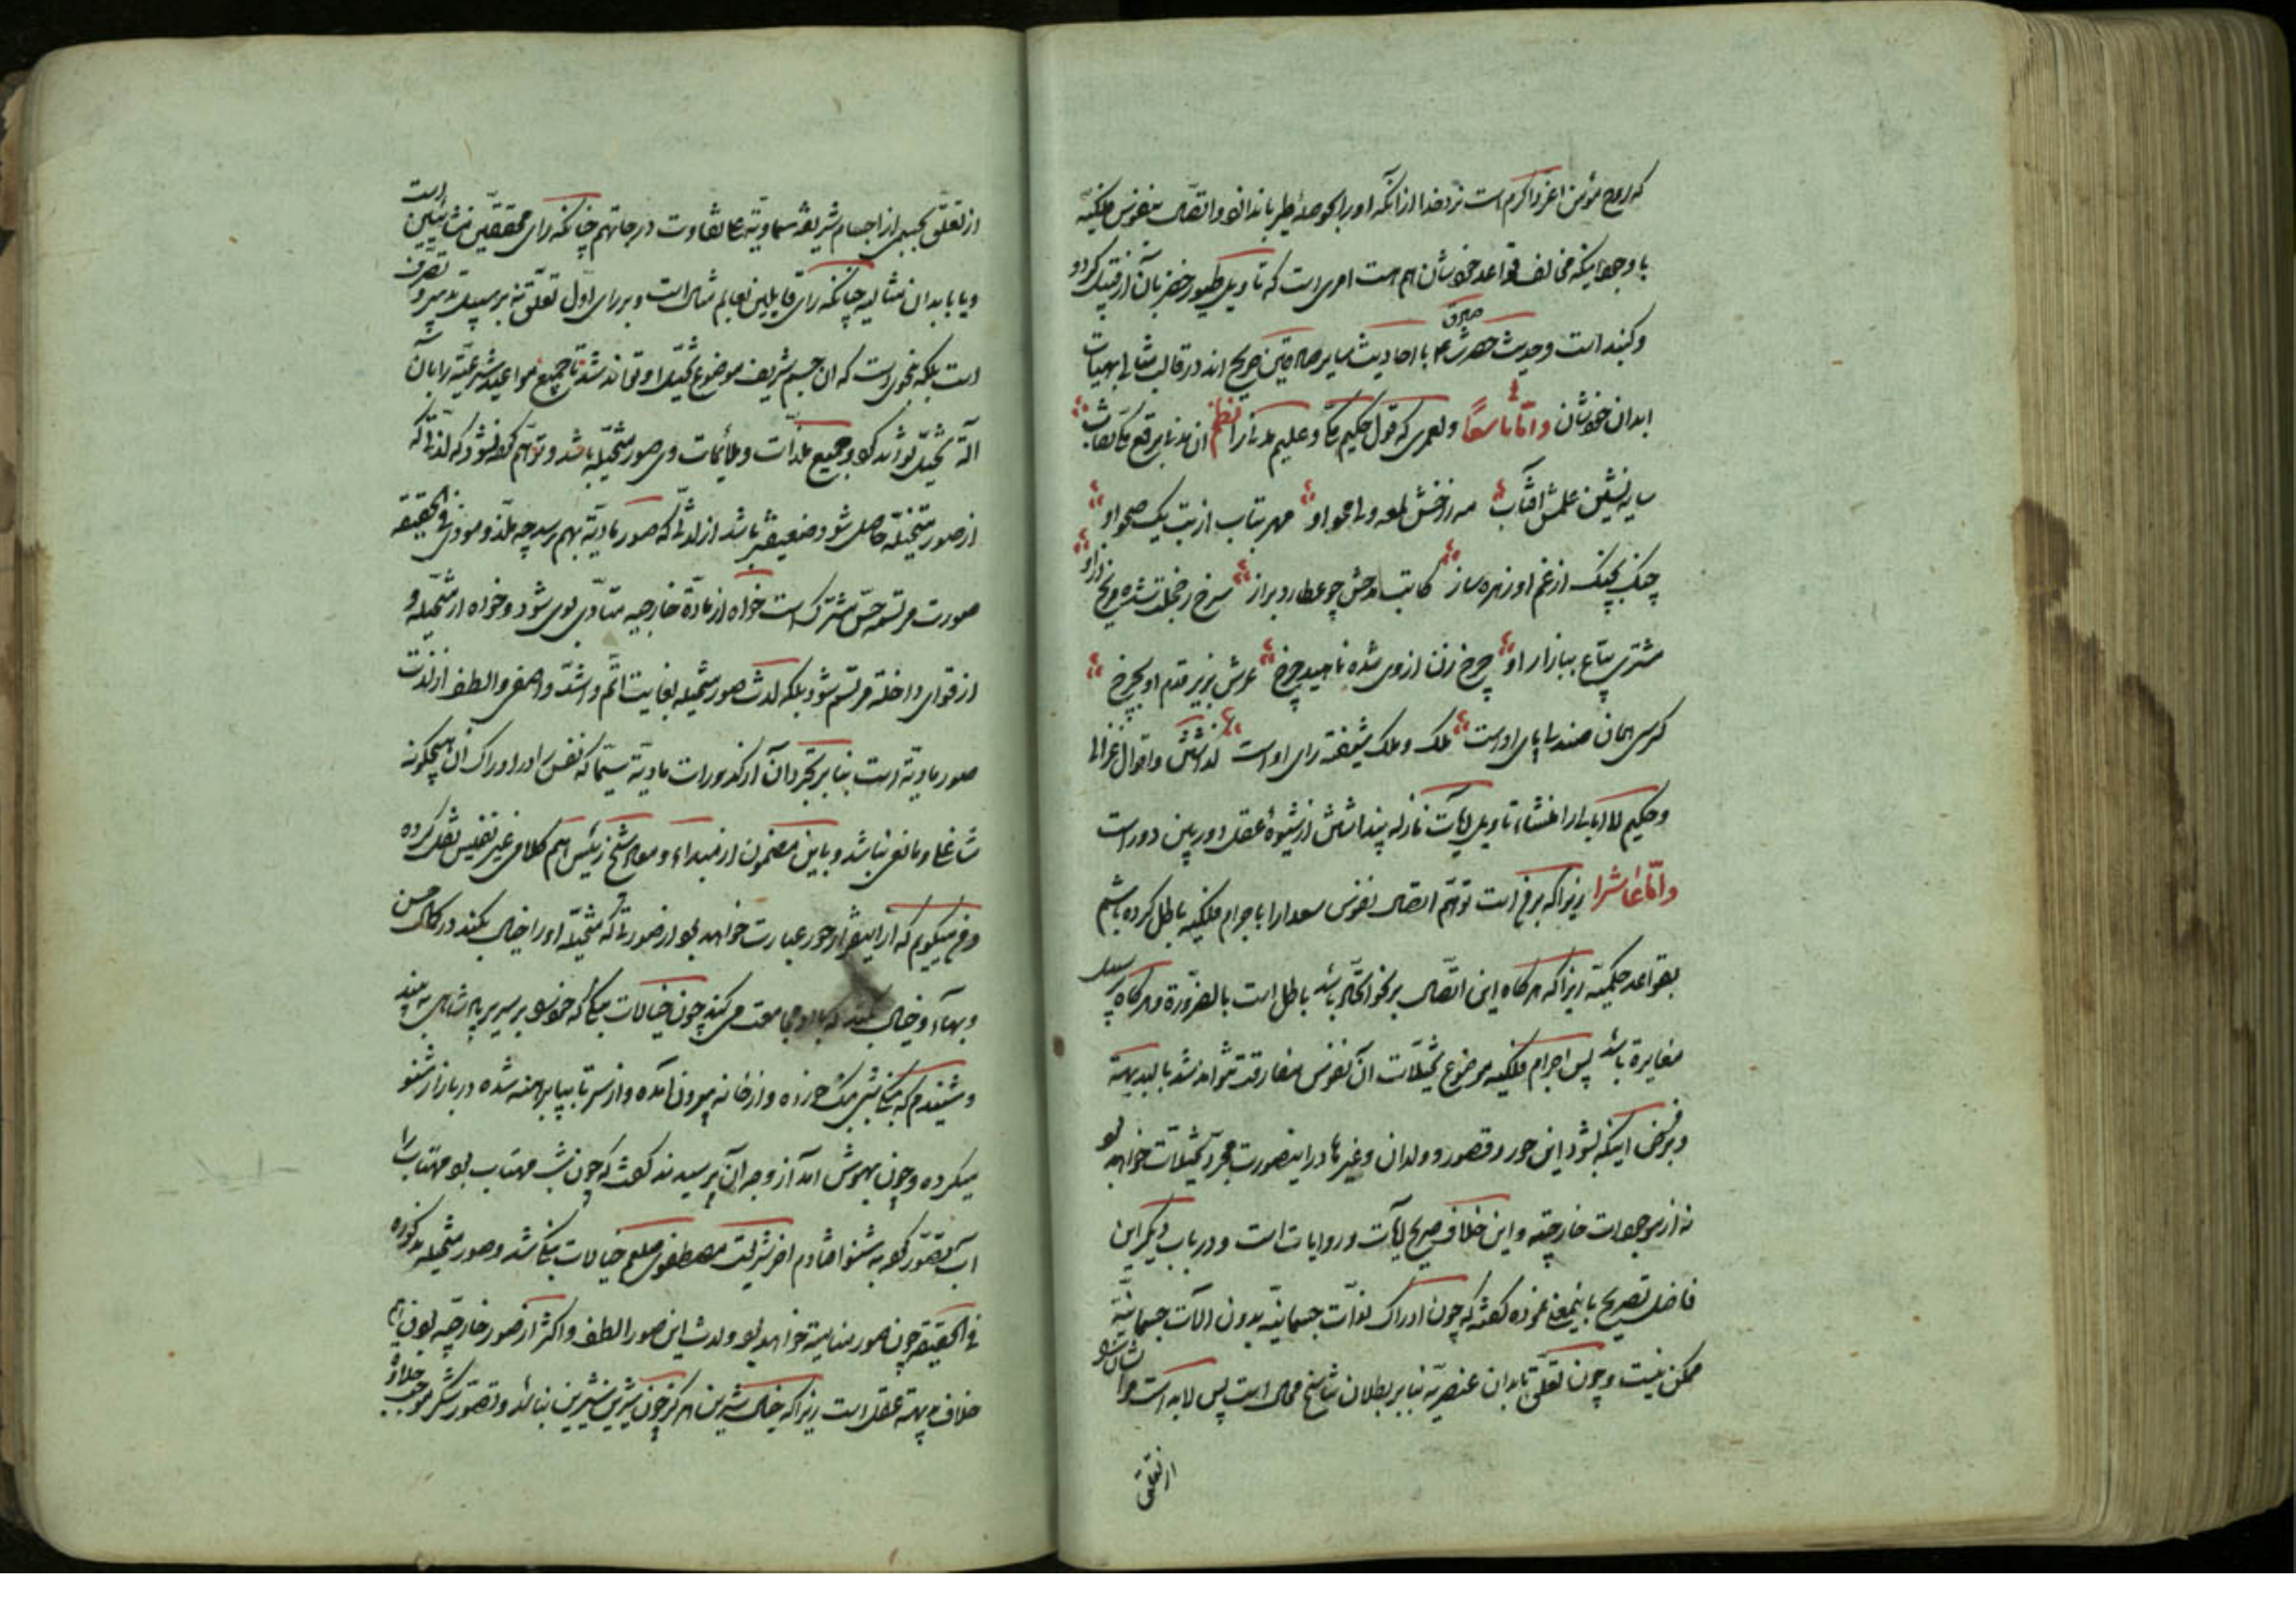 که روح مؤمن اعز و اکرم است نزد خدا از آنکه او را بحوصلهٔ طیر بازدارد و اتصال بنفوس فلکیه
با وجود اینکه مخالف قواعد خودشان هم هست امری است که تاویل طیور خضر بآن از قبیل کردو
و کنبد است و حدیث حضرت صادق ع با احادیث سایر صادقین صریح اند در قالب مثالی بهیات
ابدان خودشان و اما تاسعا و لعمری که قول حکیم مکی و علیم مدنی را نظم آن مدنی برقع مکی نقاب
سایه نشین علمش آفتاب مه ز رخش لمعه و لا محو او مهر بتاب از تب یک صحو او
چنگ بچنگ از غم او زهره ساز کاتب مدحش چو عطارد براز سرخ ز خجلت شده مریخ زار او
مشتری بیاع ببازار او چرخ زنان از وی شده ناهید چرخ عرش بزیر قدم او بچرخ
کرسی همان صندلی پای اوست ملک و ملک شیفته رای اوست گذاشتن و اقوال غزالی
و حکیم لاابالی را منشاء تاویل آیات نازله پنداشتن از شیوهٔ عقل دوربین دور است
و اما عاشرا زیرا که برفع است توهم اتصال نفوس سعدا را با جرام فلکیه باطل کرده باشم
بقواعد حکمیه زیرا که هرکاه این اتصال بر نحو اتحاد باشد باطل است بالضرورة و هرکاه بر سبیل
مغایرة باشد پس اجرام فلکیه موضوع تخیلات آن نفوس مفارقت نتواند شد بالبدیهة
و بر فرض اینکه بشود این حور و قصور و ولدان و غیرها در اینصورت مجرد تخیلات خواهد بود
نه از موجودات خارجیه و این خلاف صریح آیات و روایات است و در باب دیگر این
فاضل تصریح باینمعنی نموده گفته که چون ادراک لذات جسمانیه بدون آلات جسمانیه
ممکن نیست و چون تعلق بابدان عنصریه بنابر بطلان تناسخ محال است پس لابد است مر ایشان را
از تعلق
از تعلق بجسمی از اجسام شریفه سماویه علی تفاوت درجاتهم چنانکه رای محققین مشائیین است
و یا بابدان مثالیه چنانکه رای قایلین بعالم مثال است و بر رای اول تعلق نه بر سبیل تدبیر و تصرف
است بلکه بنحوی است که آن جسم شریف موضوع تخیل او تواند شد تا جمیع مواعید شرعیه را بآن
آلة تخیل تواند کرد و جمیع ملذات و ملائمات وی صور متخیله باشد و توهم کرده نشود که لذتی که
از صور متخیله حاصل شود ضعیفتر باشد از لذتی که صور مادیه بهم رسد چه ملذ و موذی فی الحقیقه
صورت مرتسمه حس مشترک است خواه از مادة خارجیه متادی بوی شود و خواه از متخیله و
از قوای داخله مرتسم شود بلکه لذت صور متخیله بغایت اتم و اشد و اصفی و الطف از لذت
صور مادیه است بنابر تجرد آن از کدورات مادیه سیما که نفس را در ادراک آن هیچگونه
شاغل و مانعی نباشد و باین مضمون از مبداء و معاد شیخ رئیس هم کلامی غیر نفیس نقل کرده
و من میگویم که آنرا اینقدر از حور عبارت خواهد بود از صورتی که متخیله او را خیال بکند در کمال حسن
و بهاء و خیال کند که با او مجامعت می کند چون خیالات بنکی که خود را بر سریر پادشاهی می بیند
و شنیدم که بنکی شبی بنک خورده و از خانه بیرون آمده و از سر تا بپا برهنه شده در بازار شنو
میکرده و چون بهوش آمد از وجه آن پرسیدند گفت که چون شب مهتاب بود مهتاب را
آب تصور کرده به شنو افتادم آخر شریعت مصطفوی ملعب خیالات بنکی شد و صور متخیله مذکوره
فی الحقیقه چون صور منامیه خواهد بود و لذت این صور الطف و اکثر از صور خارجیه بودن
خلاف بدیهة عقل است زیرا که خیال شیرین هرگز چون شیرین شیرین نباشد و تصور شکر موجب حلاوة